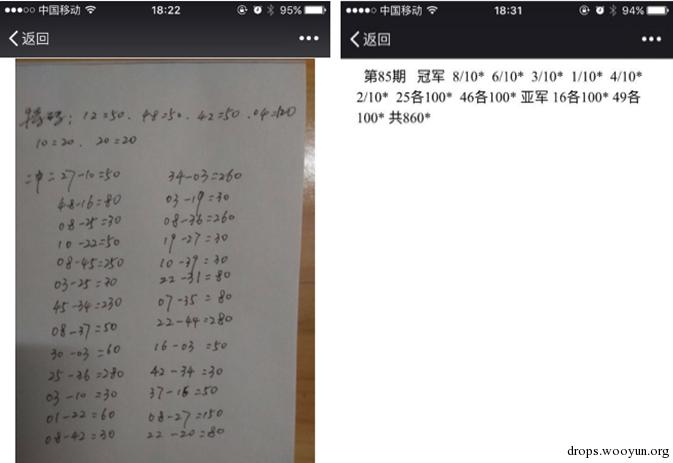 中国移动 18:22 95%
返回
特码: 12=50. 48=50. 42=50. 04=120
10=20. 20=20
二中二 27-10=50 34-03=260
48-16=80 03-19=30
08-25=30 08-36=260
10-22=50 19-27=30
08-45=250 10-39=30
03-25=30 22-31=80
45-34=230 07-35=80
08-37=50 22-44=280
30-03=60 16-03=50
25-36=280 42-34=30
03-10=30 37-16=50
01-22=60 08-27=150
08-42=30 22-20=80
中国移动 18:31 94%
返回
第85期 冠军 8/10* 6/10* 3/10* 1/10* 4/10*
2/10* 25各100* 46各100* 亚军 16各100* 49各
100* 共860*
drops.wooyun.org